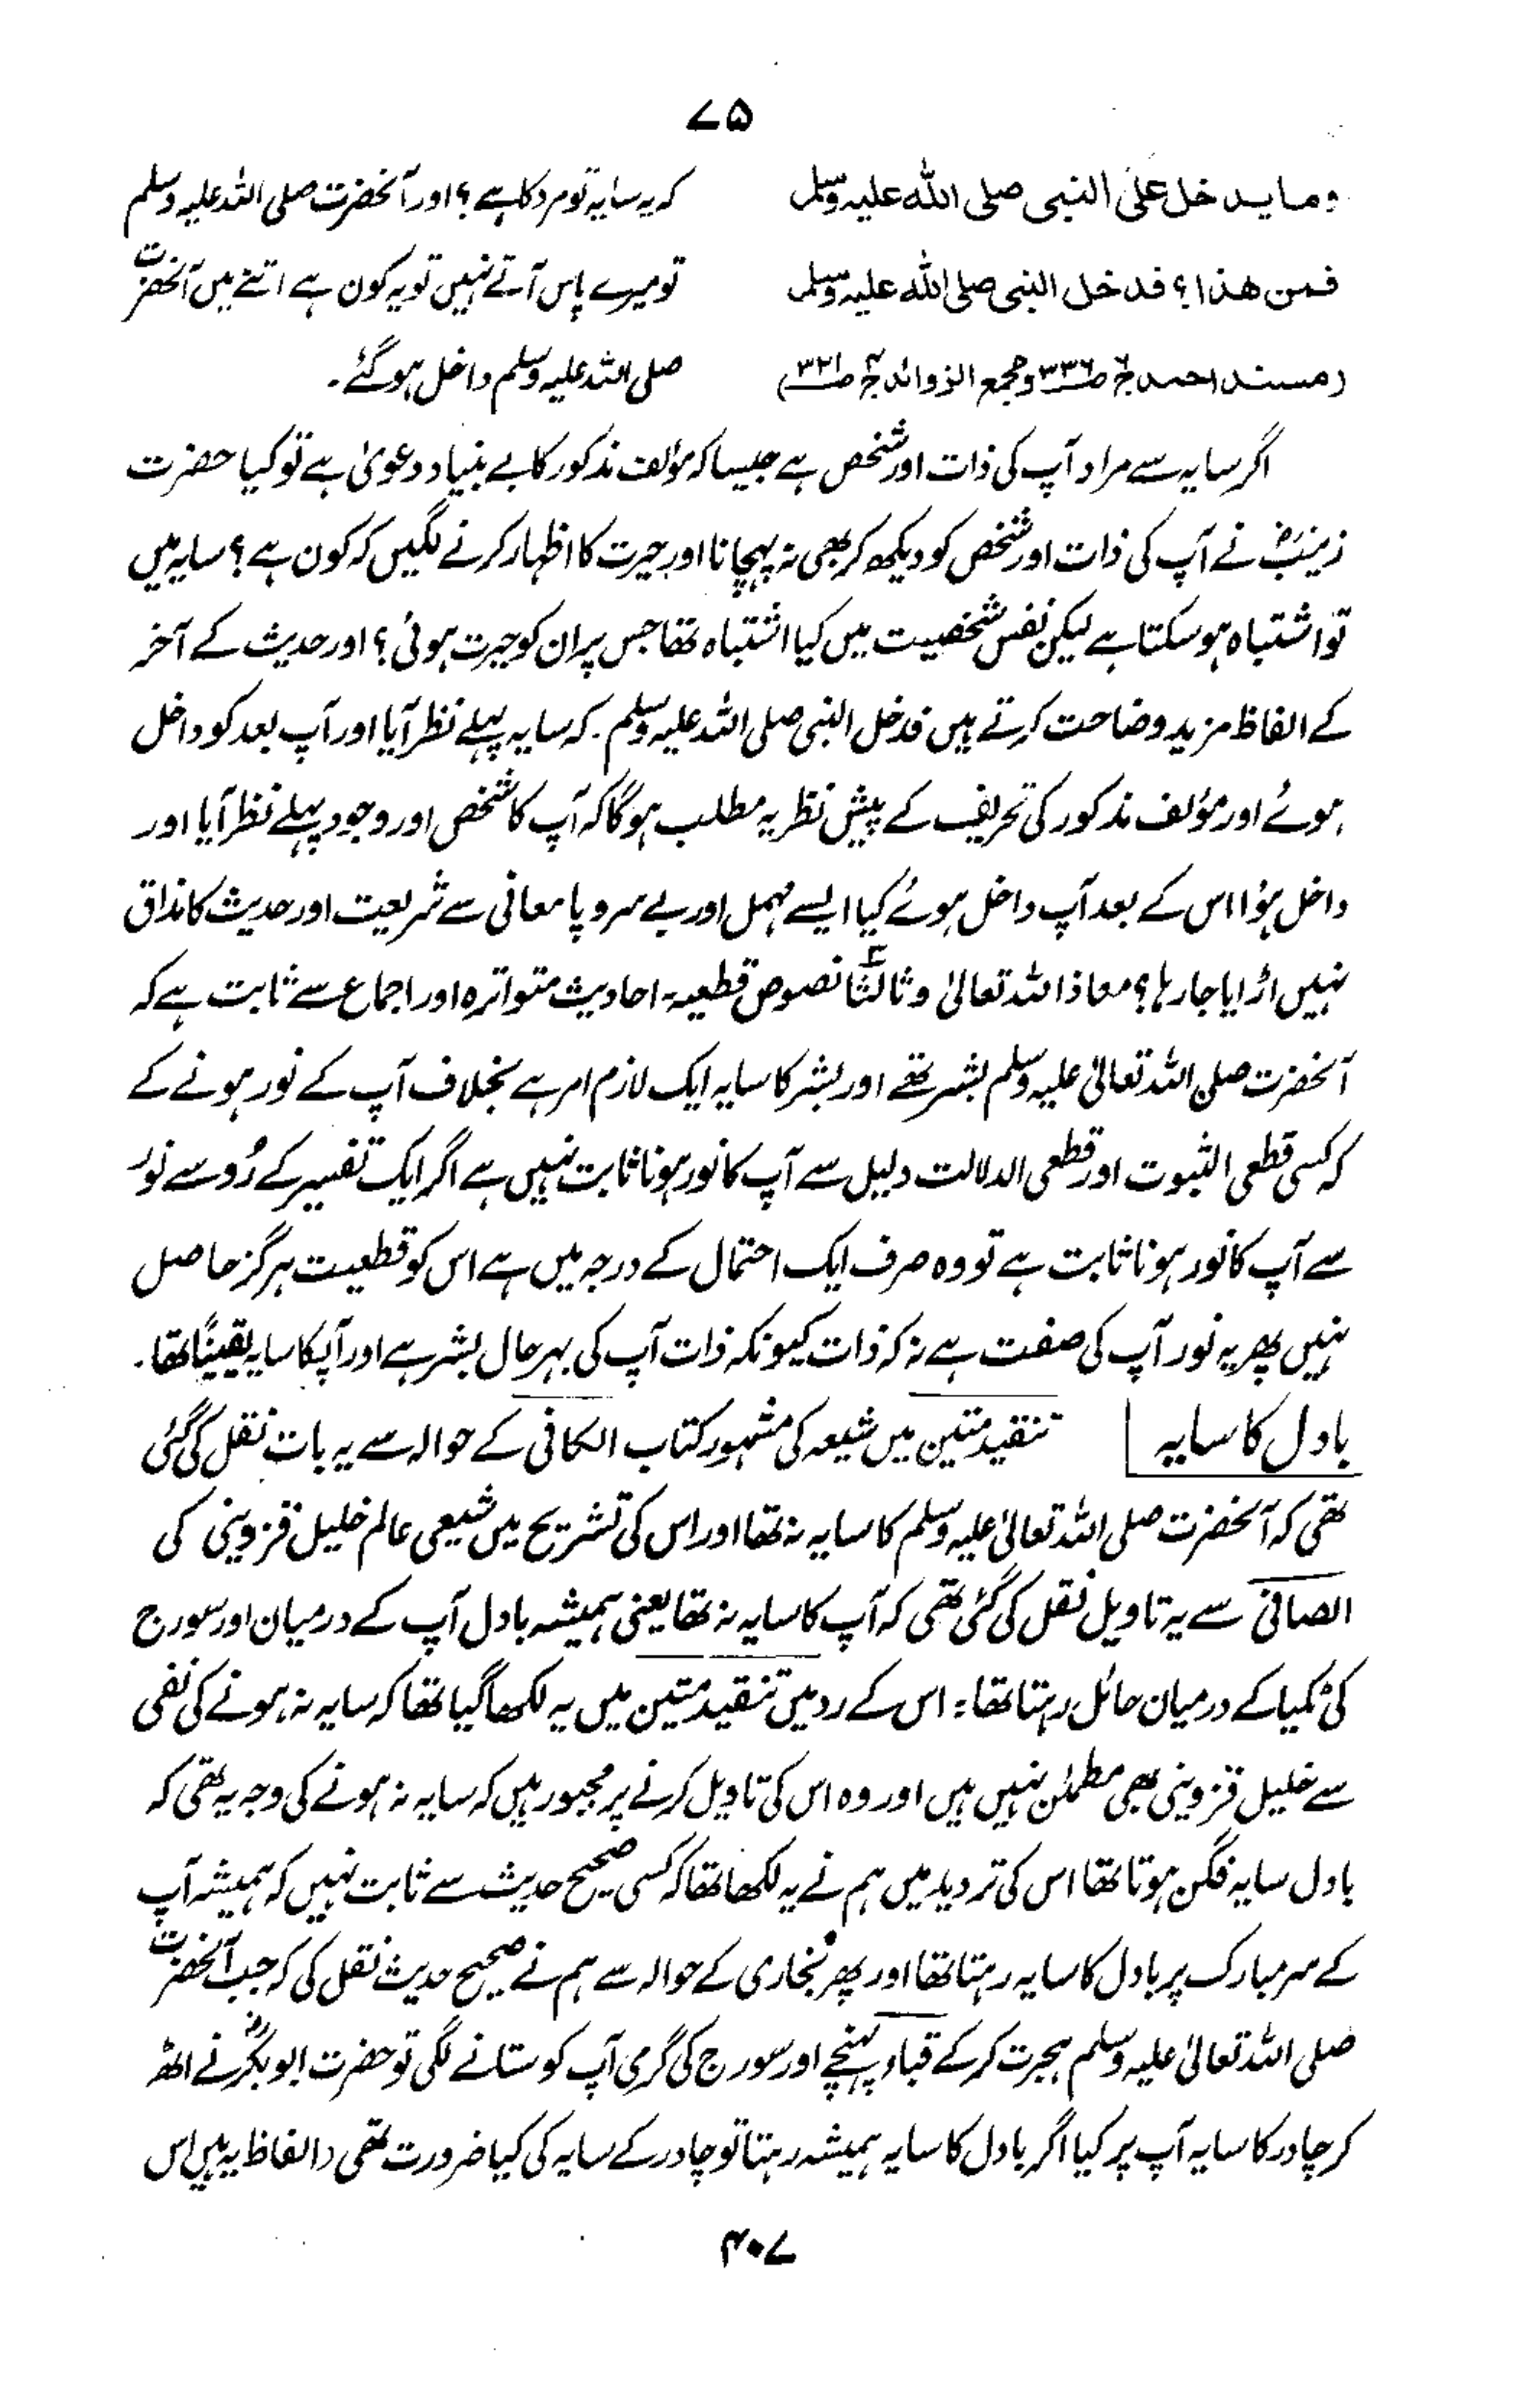 ۷۵
وما يدخل على النبي صلى الله عليه وسلم
فمن هذا؟ فدخل النبي صلى الله عليه وسلم
(مسند احمد ج۶ ص۳۳۶ ومجمع الزوائد ج۴ ص۳۲۱)
کہ یہ سایہ تو مرد کا ہے؟ اور آنحضرت صلی اللہ علیہ وسلم
تو میرے پاس آتے نہیں تو یہ کون ہے اتنے میں آنحضرت
صلی اللہ علیہ وسلم داخل ہو گئے۔
اگر سایہ سے مراد آپ کی ذات اور شخص ہے جیسا کہ مؤلف مذکور کا بے بنیاد دعویٰ ہے تو کیا حضرت
زینبؓ نے آپ کی ذات اور شخص کو دیکھ کر بھی نہ پہچانا اور حیرت کا اظہار کرنے لگیں کہ کون ہے؟ سایہ میں
تو اشتباہ ہو سکتا ہے لیکن نفس شخصیت میں کیا اشتباہ تھا جس پر ان کو حیرت ہوئی؟ اور حدیث کے آخر
کے الفاظ مزید وضاحت کرتے ہیں فدخل النبی صلی اللہ علیہ وسلم۔ کہ سایہ پہلے نظر آیا اور آپ بعد کو داخل
ہوئے اور مؤلف مذکور کی تحریف کے پیش نظر یہ مطلب ہوگا کہ آپ کا شخص اور وجود پہلے نظر آیا اور
داخل ہؤا اس کے بعد آپ داخل ہوئے کیا ایسے مہمل اور بے سروپا معانی سے شریعت اور حدیث کا مذاق
نہیں اڑایا جا رہا؟ معاذ اللہ تعالیٰ وثالثًا نصوص قطعیہ۔ احادیث متواترہ اور اجماع سے ثابت ہے کہ
آنحضرت صلی اللہ تعالیٰ علیہ وسلم بشر تھے اور بشر کا سایہ ایک لازم امر ہے بخلاف آپ کے نور ہونے کے
کہ کسی قطعی الثبوت اور قطعی الدلالت دلیل سے آپ کا نور ہونا ثابت نہیں ہے اگر ایک تفسیر کے رُو سے نورٌ
سے آپ کا نور ہونا ثابت ہے تو وہ صرف ایک احتمال کے درجہ میں ہے اس کو قطعیت ہرگز حاصل
نہیں پھر یہ نور آپ کی صفت ہے نہ کہ ذات کیونکہ ذات آپ کی بہرحال بشر ہے اور آپکا سایہ یقینًا تھا۔
بادل کا سایہ تنقید متین میں شیعہ کی مشہور کتاب الکافی کے حوالہ سے یہ بات نقل کی گئی
تھی کہ آنحضرت صلی اللہ تعالیٰ علیہ وسلم کا سایہ نہ تھا اور اس کی تشریح میں شیعی عالم خلیل قزوینی کی
الصافی سے یہ تاویل نقل کی گئی تھی کہ آپ کا سایہ نہ تھا یعنی ہمیشہ بادل آپ کے درمیان اور سورج
کی ٹکیا کے درمیان حائل رہتا تھا۔ اس کے رد میں تنقید متین میں یہ لکھا گیا تھا کہ سایہ نہ ہونے کی نفی
سے خلیل قزوینی بھی مطمئن نہیں ہیں اور وہ اس کی تاویل کرنے پر مجبور ہیں کہ سایہ نہ ہونے کی وجہ یہ تھی کہ
بادل سایہ فگن ہوتا تھا اس کی تردید میں ہم نے یہ لکھا تھا کہ کسی صحیح حدیث سے ثابت نہیں کہ ہمیشہ آپ
کے سر مبارک پر بادل کا سایہ رہتا تھا اور پھر بخاری کے حوالہ سے ہم نے صحیح حدیث نقل کی کہ جب آنحضرت
صلی اللہ تعالیٰ علیہ وسلم ہجرت کر کے قباء پہنچے اور سورج کی گرمی آپ کو ستانے لگی تو حضرت ابوبکرؓ نے اٹھ
کر چادر کا سایہ آپ پر کیا اگر بادل کا سایہ ہمیشہ رہتا تو چادر کے سایہ کی کیا ضرورت تھی (الفاظ یہ ہیں اس
۴۰۷